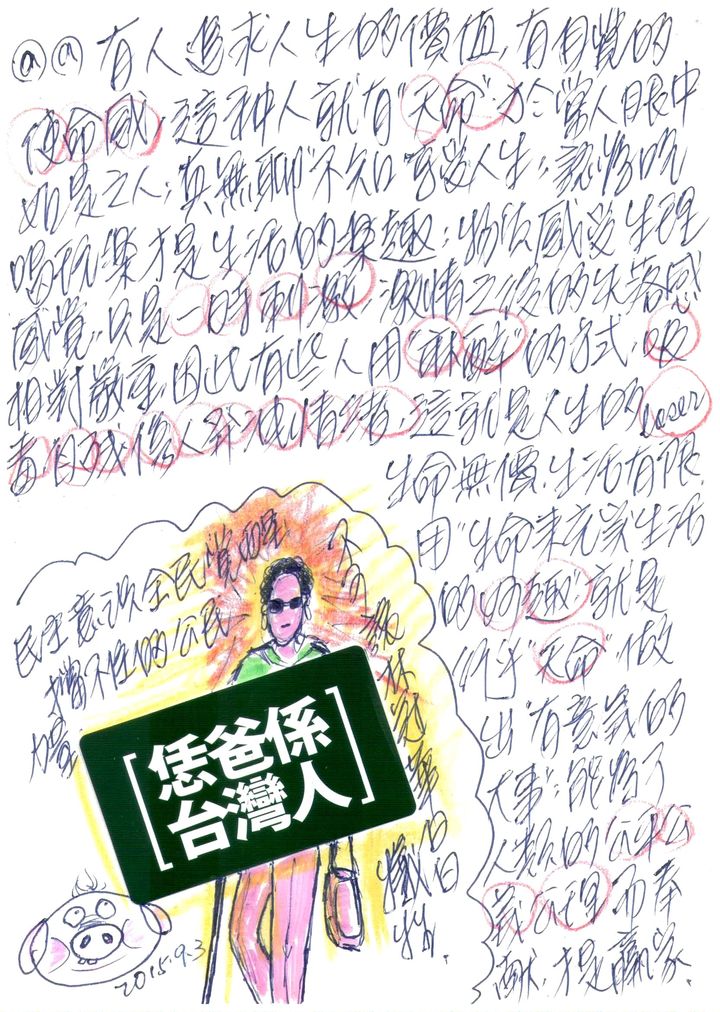 @@ 有人追求人生的價值,有自覺的
使命感,這种人就有"天命"於常人眼中
如是之人;真無聊"不知"享受人生;認為吃
喝玩樂才是生活的樂趣;物俗感受生理
感覺,只是一時刺激,激情之後的失落感
相對嚴重,因此有些人用"麻醉"的方式,吸
毒自殘傷人毀滅情緒,這就是人生的loser
生命無價,生活有限,
用"生命來充實"生活
的妙趣"就是
"天命"做
出"有意義的
大事";能為了
人類的公平公
義公理而奉
獻,才是贏家.
民主意識全民覺醒
擋不住的公民
力量
[恁爸係
台灣人]
2015.9.3